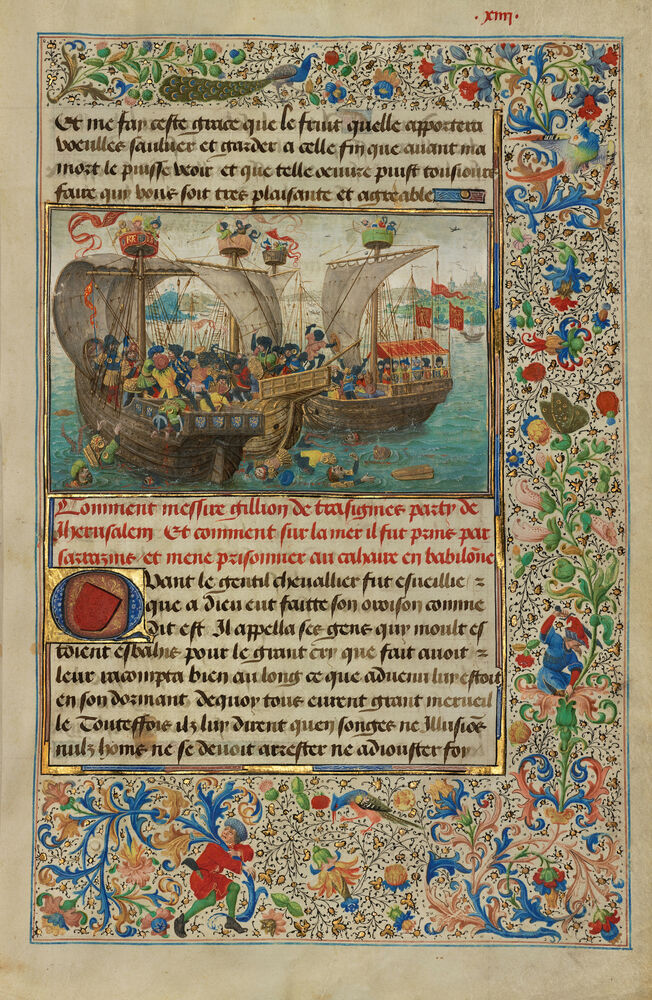 · xiiij ·
Et me fay ceste grace que le fruit quelle apportera
voeulles sauluer et garder a celle fin que auant ma
mort le puisse veoir et que telle oeuure puist tousiours
faire quy vous soit tres plaisante et agreable
Comment messire gillion de trasignies party de
Iherusalem Et comment sur la mer il fut prins par
sarrazins et mene prisonnier au cahaire en babilōne
Quant le gentil cheuallier fut esueillie ⁊
que a dieu eut faitte son oroison comme
dit est Il appella ses gens quy moult es
toient esbahis pour le grant cry que fait auoit ⁊
leur racompta bien au long ce que aduenu luy estoit
en son dormant dequoy tous eurent grant merueil
le Touteffois ilz luy dirent quen songes ne Illusiōs
nulz homs ne se deuoit arrester ne adiouster foy